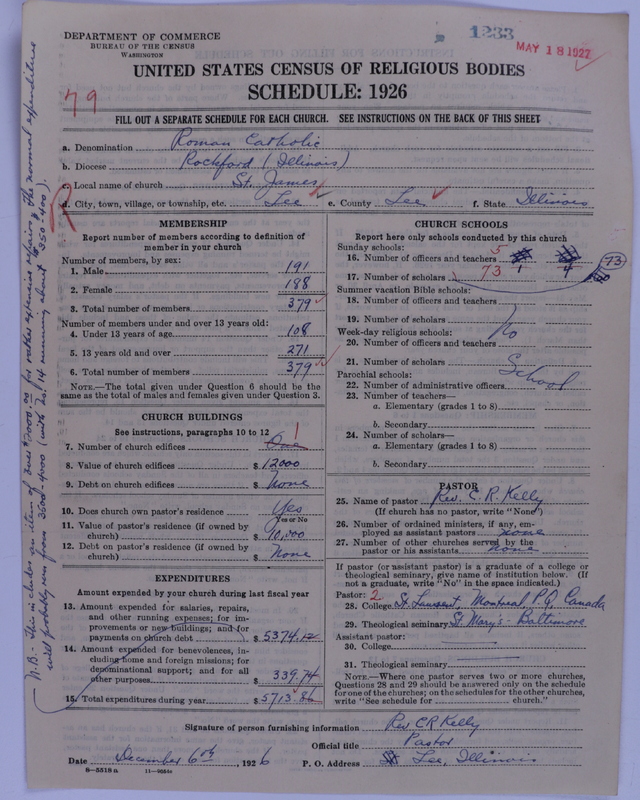 1233
MAY 18 1927
DEPARTMENT OF COMMERCE
BUREAU OF THE CENSUS
WASHINGTON
UNITED STATES CENSUS OF RELIGIOUS BODIES
SCHEDULE: 1926
79
FILL OUT A SEPARATE SCHEDULE FOR EACH CHURCH. SEE INSTRUCTIONS ON THE BACK OF THIS SHEET
a. Denomination Roman Catholic
b. Diocese Rockford (Illinois)
c. Local name of church St. James
d. City, town, village, or township, etc. Lee e. County Lee f. State Illinois
MEMBERSHIP
Report number of members according to definition of
member in your church
Number of members, by sex:
1. Male 191
2. Female 188
3. Total number of members 379
Number of members under and over 13 years old:
4. Under 13 years of age 108
5. 13 years old and over 271
6. Total number of members 379
NOTE.—The total given under Question 6 should be the
same as the total of males and females given under Question 3.
CHURCH BUILDINGS
See instructions, paragraphs 10 to 12
7. Number of church edifices One 1
8. Value of church edifices $12000
9. Debt on church edifices $ None
10. Does church own pastor's residence Yes
Yes or No
11. Value of pastor's residence (if owned by
church) $10,000
12. Debt on pastor's residence (if owned by
church) $ None
EXPENDITURES
Amount expended by your church during last fiscal year
13. Amount expended for salaries, repairs,
and other running expenses; for im-
provements or new buildings; and for
payments on church debt $5374.12
14. Amount expended for benevolences, in-
cluding home and foreign missions; for
denominational support; and for all
other purposes 339.74
15. Total expenditures during year $5713.86
CHURCH SCHOOLS
Report here only schools conducted by this church
Sunday schools:
16. Number of officers and teachers 5
17. Number of scholars 73 1 4 73
Summer vacation Bible schools:
18. Number of officers and teachers
19. Number of scholars No
Week-day religious schools:
20. Number of officers and teachers
21. Number of scholars School
Parochial schools:
22. Number of administrative officers
23. Number of teachers—
a. Elementary (grades 1 to 8)
b. Secondary
24. Number of scholars—
a. Elementary (grades 1 to 8)
b. Secondary
PASTOR
25. Name of pastor Rev. C. R. Kelly
(If church has no pastor, write "None")
26. Number of ordained ministers, if any, em-
ployed as assistant pastors none
27. Number of other churches served by the
pastor or his assistants none
If pastor (or assistant pastor) is a graduate of a college or
theological seminary, give name of institution below. (If
not a graduate, write "No" in the space indicated.)
Pastor: 2
28. College St. Laurent, Montreal P.Q. Canada
29. Theological seminary St. Mary's - Baltimore
Assistant pastor:
30. College
31. Theological seminary
NOTE.—Where one pastor serves two or more churches,
Questions 28 and 29 should be answered only on the schedule
for one of the churches; on the schedules for the other churches,
write "See schedule for church."
Signature of person furnishing information Rev CR Kelly
Official title Pastor
Date December 6th, 1926 P. O. Address Lee, Illinois
8—5318 a
N.B. - This includes an item of $2000.00 for expense repairs, the normal expenditure
will probably run from 3500-4000 (with No. 14 running about 350-400).